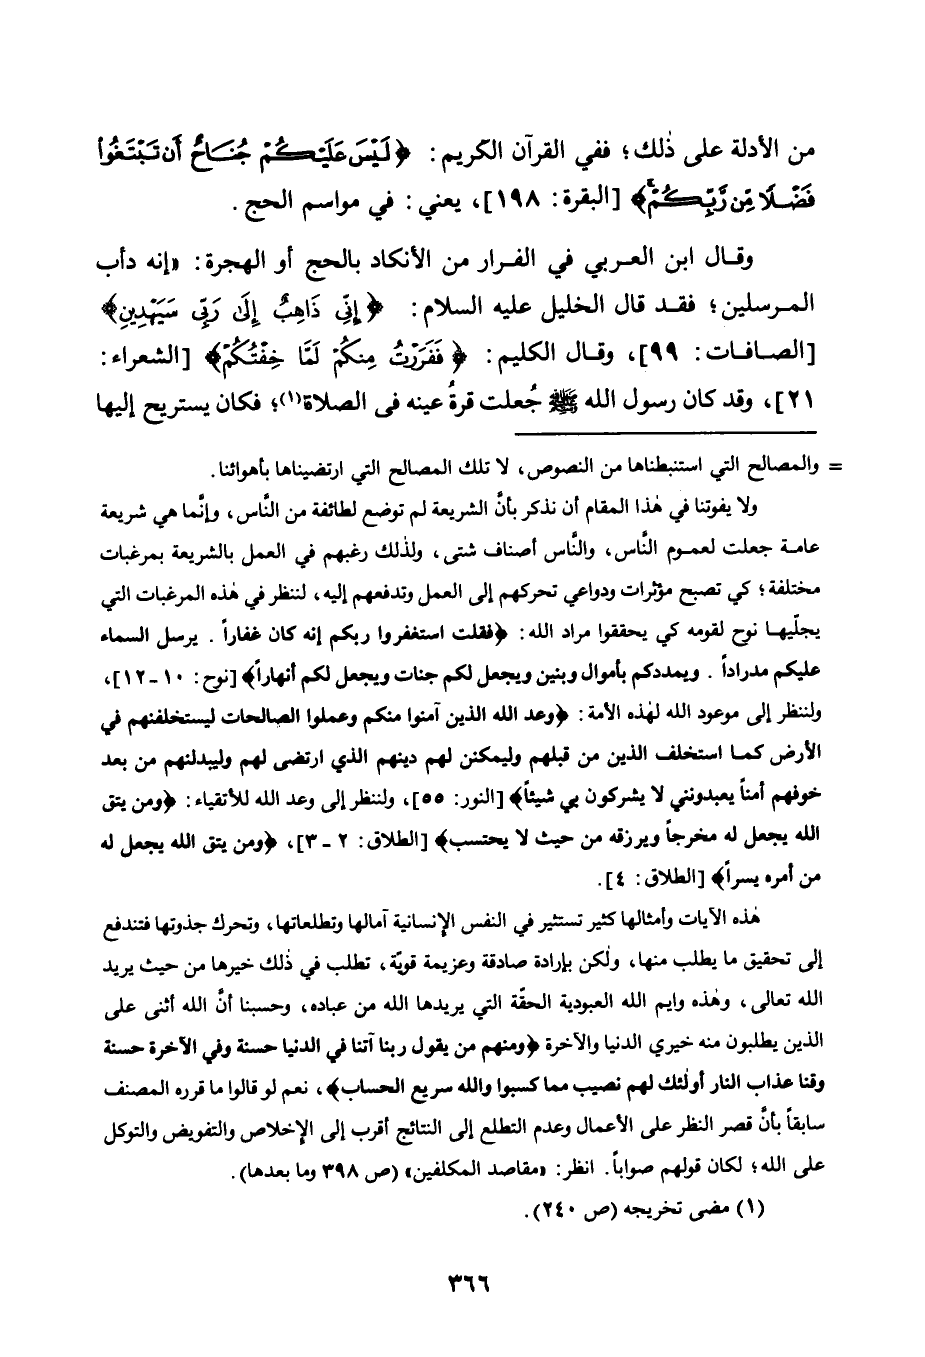 من الأدلة على ذٰلك؛ ففي القرآن الكريم: ﴿لَيْسَ عَلَيْكُمْ جُنَاحٌ أَن تَبْتَغُوا
فَضْلًا مِّن رَّبِّكُمْ ۚ﴾ [البقرة: ١٩٨]، يعني: في مواسم الحج.
وقـال ابن العـربي في الفـرار من الأنكاد بالحج أو الهجرة: «إنه دأب
المـرسلين؛ فقـد قال الخليل عليه السلام: ﴿إِنِّي ذَاهِبٌ إِلَىٰ رَبِّي سَيَهْدِينِ﴾
[الصـافـات: ٩٩]، وقـال الكليم: ﴿فَفَرَرْتُ مِنكُمْ لَمَّا خِفْتُكُمْ﴾ [الشعراء:
٢١]، وقد كان رسول الله ﷺ جُعلت قرةُ عينه في الصلاة(١)؛ فكان يستريح إليها
= والمصالح التي استنبطناها من النصوص، لا تلك المصالح التي ارتضيناها بأهوائنا.
ولا يفوتنا في هٰذا المقام أن نذكر بأنَّ الشريعة لم توضع لطائفة من النَّاس، وإنَّما هي شريعة
عامـة جعلت لعمـوم النَّاس، والنَّاس أصناف شتى، ولذٰلك رغبهم في العمل بالشريعة بمرغبات
مختلفة؛ كي تصبح مؤثرات ودواعي تحركهم إلى العمل وتدفعهم إليه، لننظر في هٰذه المرغبات التي
يجلّيهـا نوح لقومه كي يحققوا مراد الله: ﴿فقلت استغفروا ربكم إنه كان غفاراً. يرسل السماء
عليكم مدراداً. ويمددكم بأموال وبنين ويجعل لكم جنات ويجعل لكم أنهاراً﴾ [نوح: ١٠ - ١٢]،
ولننظر إلى موعود الله لهٰذه الأمة: ﴿وعد الله الذين آمنوا منكم وعملوا الصالحات ليستخلفنهم في
الأرض كمـا استخلف الذين من قبلهم وليمكنن لهم دينهم الذي ارتضى لهم وليبدلنهم من بعد
خوفهم أمناً يعبدونني لا يشركون بي شيئاً﴾ [النور: ٥٥]، ولننظر إلى وعد الله للأتقياء: ﴿ومن يتق
الله يجعل له مخرجاً ويرزقه من حيث لا يحتسب﴾ [الطلاق: ٢ - ٣]، ﴿ومن يتق الله يجعل له
من أمره يسراً﴾ [الطلاق: ٤].
هٰذه الآيات وأمثالها كثير تستثير في النفس الإنسانية آمالها وتطلعاتها، وتحرك جذوتها فتندفع
إلى تحقيق ما يطلب منها، ولٰكن بإرادة صادقة وعزيمة قويّة، تطلب في ذٰلك خيرها من حيث يريد
الله تعالى، وهٰذه وايم الله العبودية الحقّة التي يريدها الله من عباده، وحسبنا أنَّ الله أثنى على
الذين يطلبون منه خيري الدنيا والآخرة ﴿ومنهم من يقول ربنا آتنا في الدنيا حسنة وفي الآخرة حسنة
وقنا عذاب النار أولٰئك لهم نصيب مما كسبوا والله سريع الحساب﴾، نعم لو قالوا ما قرره المصنف
سابقاً بأنَّ قصر النظر على الأعمال وعدم التطلع إلى النتائج أقرب إلى الإخلاص والتفويض والتوكل
على الله؛ لكان قولهم صواباً. انظر: «مقاصد المكلفين» (ص ٣٩٨ وما بعدها).
(١) مضى تخريجه (ص ٢٤٠).
٣٦٦